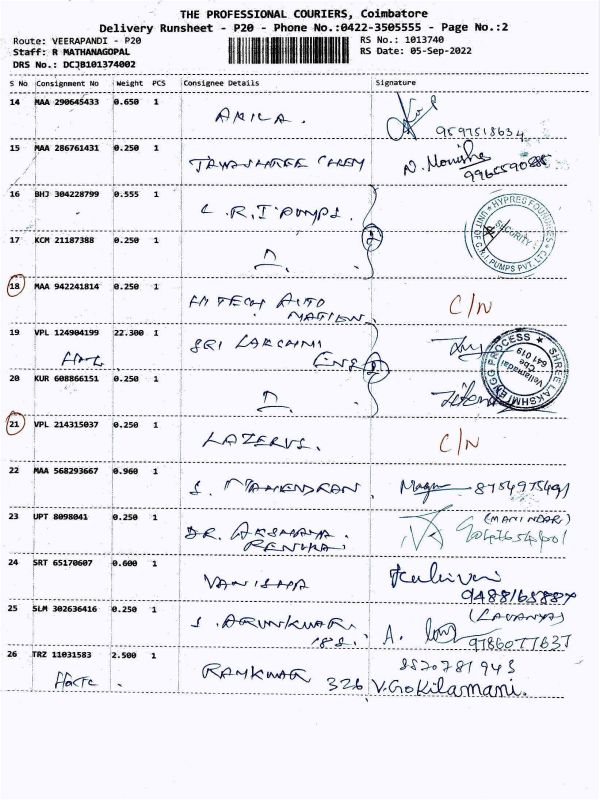 THE PROFESSIONAL COURIERS, Coimbatore
Delivery Runsheet - P20 - Phone No.:0422-3505555 - Page No.:2
Route: VEERAPANDI - P20 RS No.: 1013740
Staff: R MATHANAGOPAL RS Date: 05-Sep-2022
DRS No.: DCJB101374002
S No Consignment No Weight PCS Consignee Details Signature
14 MAA 290645433 0.650 1 AKILA.
9597518634
15 MAA 286761431 0.250 1
N. Monisha
16 BHJ 304228799 0.555 1 C.R.I PUMPS.
HYPRES FOUNDRIES
UNIT OF C.R.I. PUMPS PVT. LTD
SECURITY
17 KCM 21187388 0.250 1
18 MAA 942241814 0.250 1 HITECH AUTO
MATION. C/N
19 VPL 124904199 22.300 1 SRI LAKSHMI
ENG
SHREE LAKSHMI ENGG PROCESS
Vellamadai
Cbe
641 019
20 KUR 608866151 0.250 1
21 VPL 214315037 0.250 1 LAZERUS. C/N
22 MAA 568293667 0.960 1 S. MAHENDRAN. 8754975491
23 UPT 8098041 0.250 1 DR. AKSHAYA
RENUKA
(MANINDAR)
24 SRT 65170607 0.600 1 VANISHA
25 SLM 302636416 0.250 1 S. ARUNKUMAR
(LAVANYA)
9786077637
26 TRZ 11031583 2.500 1 RAMKUMAR
326 V.Gokilamani.